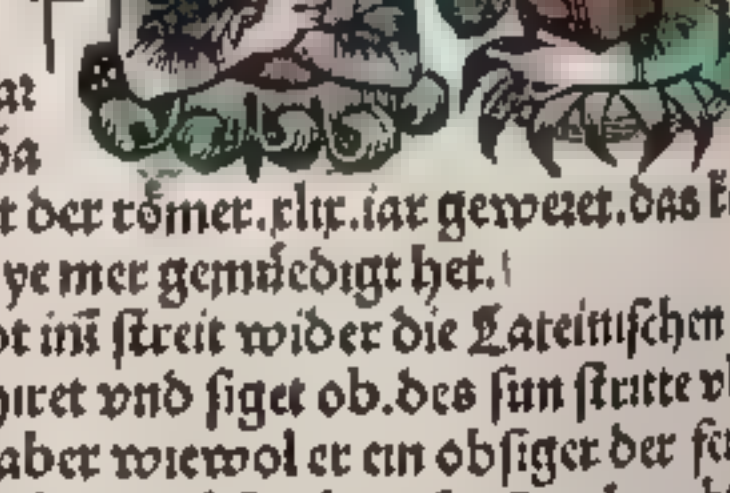 der römer.xlix.iar geweret.das
ye mer gemüedigt het.
ſtreit wider die Lateiniſchen
vnd ſiget ob.des ſun ſtritte
aber wiewol er ein obſiger der